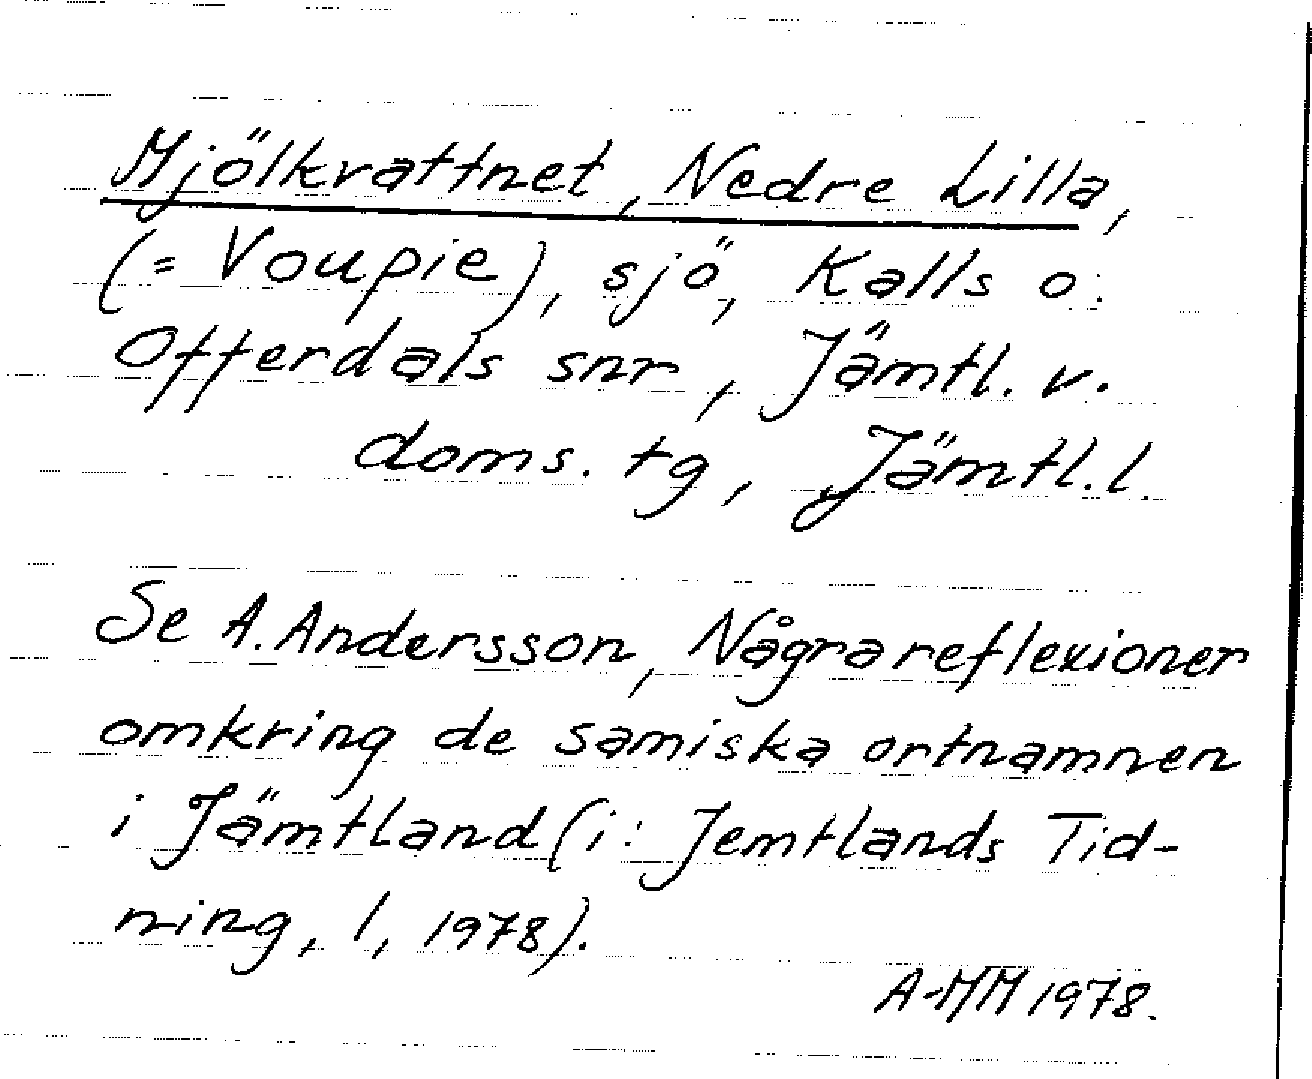 Mjölkvattnet, Nedre Lilla,
(= Voupie), sjö, Kalls o.
Offerdals snr, Jämtl. v.
doms. tg, Jämtl. l.
Se A. Andersson, Några reflexioner
omkring de samiska ortnamnen
i Jämtland (i: Jemtlands Tid-
ning, 1, 1978).
A-MM 1978.